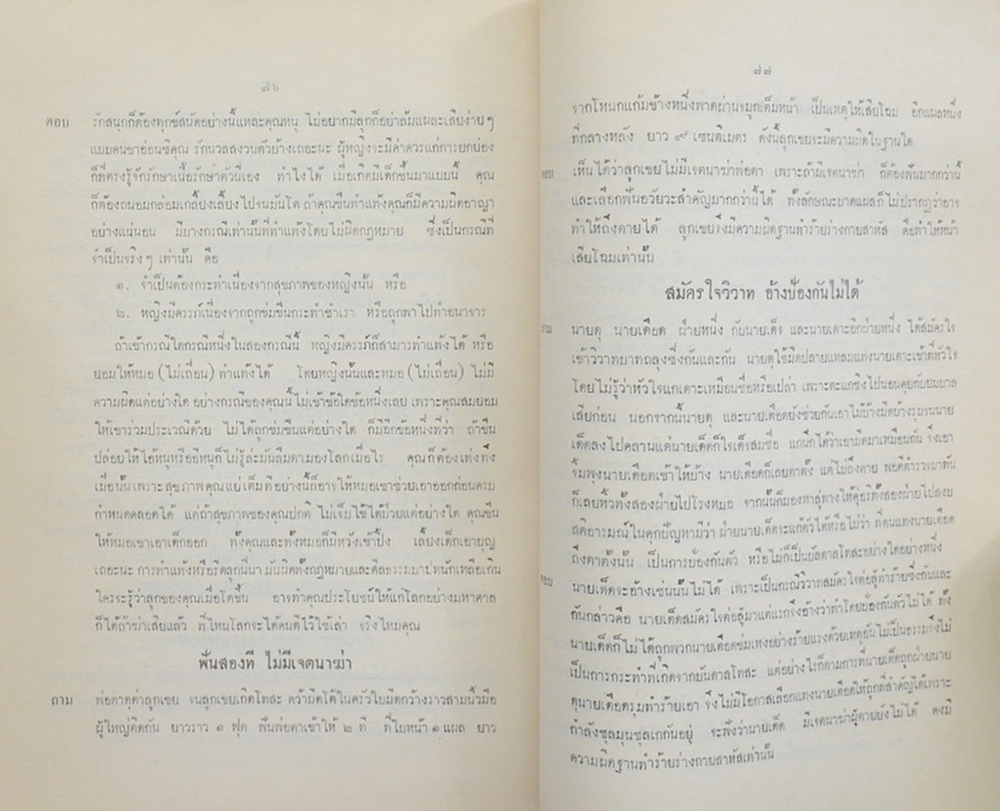 ๗๖
ตอบ รักสนุกก็ต้องทุกข์สนัดอย่างนี้แหละคุณหนู ไม่อยากมีลูกก็อย่าล้มแผละเสียง่าย ๆ
แบบคนขาอ่อนซิคุณ รักนวลสงวนตัวบ้างเถอะนะ ผู้หญิงจะมีค่าควรแก่การยกย่อง
ก็ที่ตรงรู้จักรักษาเนื้อรักษาตัวนี่เอง ทำไงได้ เมื่อเกิดมีเด็กขึ้นมาแบบนี้ คุณ
ก็ต้องถนอมกล่อมเกลี้ยงเลี้ยงไปจนมันโต ถ้าคุณขืนทำแท้งคุณก็มีความผิดอาญา
อย่างแน่นอน มีบางกรณีเท่านั้นที่ทำแท้งโดยไม่ผิดกฎหมาย ซึ่งเป็นกรณีที่
จำเป็นจริง ๆ เท่านั้น คือ
๑. จำเป็นต้องกระทำเนื่องจากสุขภาพของหญิงนั้น หรือ
๒. หญิงมีครรภ์เนื่องจากถูกข่มขืนกระทำชำเรา หรือถูกพาไปทำอนาจาร
ถ้าเข้ากรณีใดกรณีหนึ่งในสองกรณีนี้ หญิงมีครรภ์ก็สามารถทำแท้งได้ หรือ
ยอมให้หมอ (ไม่เถื่อน) ทำแท้งได้ โดยหญิงนั้นและหมอ (ไม่เถื่อน) ไม่มี
ความผิดแต่อย่างใด อย่างกรณีของคุณนี้ไม่เข้าข้อใดข้อหนึ่งเลย เพราะคุณสมยอม
ให้เขาร่วมประเวณีด้วย ไม่ได้ถูกข่มขืนแต่อย่างใด ก็มีอีกข้อหนึ่งที่ว่า ถ้าขืน
ปล่อยให้ไอ้หนูหรืออีหนูก็ไม่รู้ล่ะมันลืมตามองโลกเมื่อไร คุณก็ต้องเท่งทึง
เมื่อนั้นเพราะสุขภาพคุณแย่เต็มทีอย่างนี้ก็อาจให้หมอเขาช่วยเอาออกก่อนครบ
กำหนดคลอดได้ แต่ถ้าสุขภาพของคุณปกติ ไม่เจ็บไข้ได้ป่วยแต่อย่างใด คุณขืน
ให้หมอเขาเอาเด็กออก ทั้งคุณและทั้งหมอก็มีหวังเข้าปิ้ง เลี้ยงเด็กเอาบุญ
เถอะนะ การทำแท้งหรือรีดลูกนี่นา มันผิดทั้งกฎหมายและศีลธรรมบาปหนักเหลือเกิน
ใครจะรู้ว่าลูกของคุณเมื่อโตขึ้น อาจทำคุณประโยชน์ให้แก่โลกอย่างมหาศาล
ก็ได้ถ้าฆ่าเสียแล้ว ที่ไหนโลกจะได้คนดีไว้ใช้เล่า จริงไหมคุณ
ฟันสองที ไม่มีเจตนาฆ่า
ถาม พ่อตาดุด่าลูกเขย จนลูกเขยเกิดโทสะ คว้ามีดโต้ในครัวใบมีดกว้างราวสามนิ้วมือ
ผู้ใหญ่ติดกัน ยาวราว ๑ ฟุต ฟันพ่อตาเข้าให้ ๒ ที ที่ใบหน้า ๑ แผล ยาว
๗๗
จากโหนกแก้มข้างหนึ่งพาดผ่านจมูกเต็มหน้า เป็นเหตุให้เสียโฉม อีกแผลหนึ่ง
ที่กลางหลัง ยาว ๑๙ เซนติเมตร ดังนี้ลูกเขยจะมีความผิดในฐานใด
ตอบ เห็นได้ว่าลูกเขยไม่มีเจตนาฆ่าพ่อตา เพราะถ้ามีเจตนาฆ่า ก็ต้องฟันมากกว่านี้
และเลือกฟันอวัยวะสำคัญมากกว่านี้ได้ ทั้งลักษณะบาดแผลก็ไม่ปรากฏว่าอาจ
ทำให้ถึงตายได้ ลูกเขยจึงมีความผิดฐานทำร้ายร่างกายสาหัส คือทำให้หน้า
เสียโฉมเท่านั้น
สมัครใจวิวาท อ้างป้องกันไม่ได้
ถาม นายดุ นายเดือด ฝ่ายหนึ่ง กับนายเด็จ และนายเดาะอีกฝ่ายหนึ่ง ได้สมัครใจ
เข้าวิวาทบาทถลุงซึ่งกันและกัน นายดุใช้มีดปลายแหลมแทงนายเดาะเข้าที่หัวใจ
โดยไม่รู้ว่าหัวใจแกเดาะเหมือนชื่อหรือเปล่า เพราะตะแกชิงไปนอนคุยกับยมบาล
เสียก่อน นอกจากนี้นายดุ และนายเดือดยังช่วยกันเอาไม้บ้างมีดบ้างรุมจนนาย
เด็ดลงไปคลานแต่นายเด็ดก็ใจเด็จสมชื่อ แกนึกได้ว่าเอามีดมาเหมือนกัน จึงเอา
จิ้มพุงนายเดือดเข้าให้บ้าง นายเดือดก็เลยตาตั้ง แต่ไม่ถึงตาย พอดีตำรวจมาทัน
ก็เลยหิ้วทั้งสองฝ่ายไปโรงหมอ จากนั้นก็มองหาลู่ทางให้คู่อริทั้งสองฝ่ายไปสงบ
สติอารมณ์ในคุกปัญหามีว่า ฝ่ายนายเด็ดจะแก้ตัวได้หรือไม่ว่า ที่ตนแทงนายเดือด
ถึงตาตั้งนั้น เป็นการป้องกันตัว หรือไม่ก็เป็นบันดาลโทสะอย่างใดอย่างหนึ่ง
ตอบ นายเด็ดจะอ้างเช่นนั้นไม่ได้ เพราะเป็นกรณีวิวาทสมัครใจต่อสู้ทำร้ายซึ่งกันและ
กันกล่าวคือ นายเด็ดสมัครใจต่อสู้มาแต่แรกจึงอ้างว่าทำโดยป้องกันตัวไม่ได้ ทั้ง
นายเด็ดก็ไม่ได้ถูกพวกนายเดือดข่มเหงอย่างร้ายแรงด้วยเหตุอันไม่เป็นธรรมจึงไม่
เป็นการกระทำที่เกิดจากบันดาลโทสะ แต่อย่างไรก็ตามการที่นายเด็ดถูกฝ่ายนาย
ดุนายเดือดรุมทำร้ายเอา จึงไม่มีโอกาสเลือกแทงนายเดือดให้ถูกที่สำคัญได้เพราะ
กำลังชุลมุนชุลเกกันอยู่ จะฟังว่านายเด็ด มีเจตนาฆ่าผู้ตายยังไม่ได้ คงมี
ความผิดฐานทำร้ายร่างกายสาหัสเท่านั้น